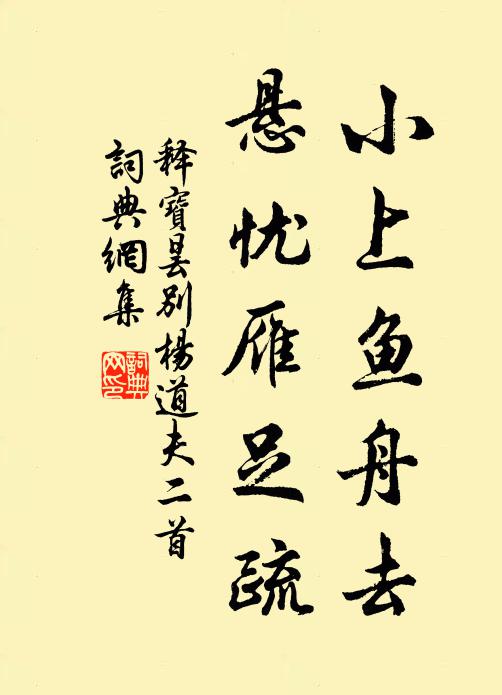 小上鱼舟去
悬忧雁足疏
释寶昙别楊道夫二首
詞典網集
詞典网印